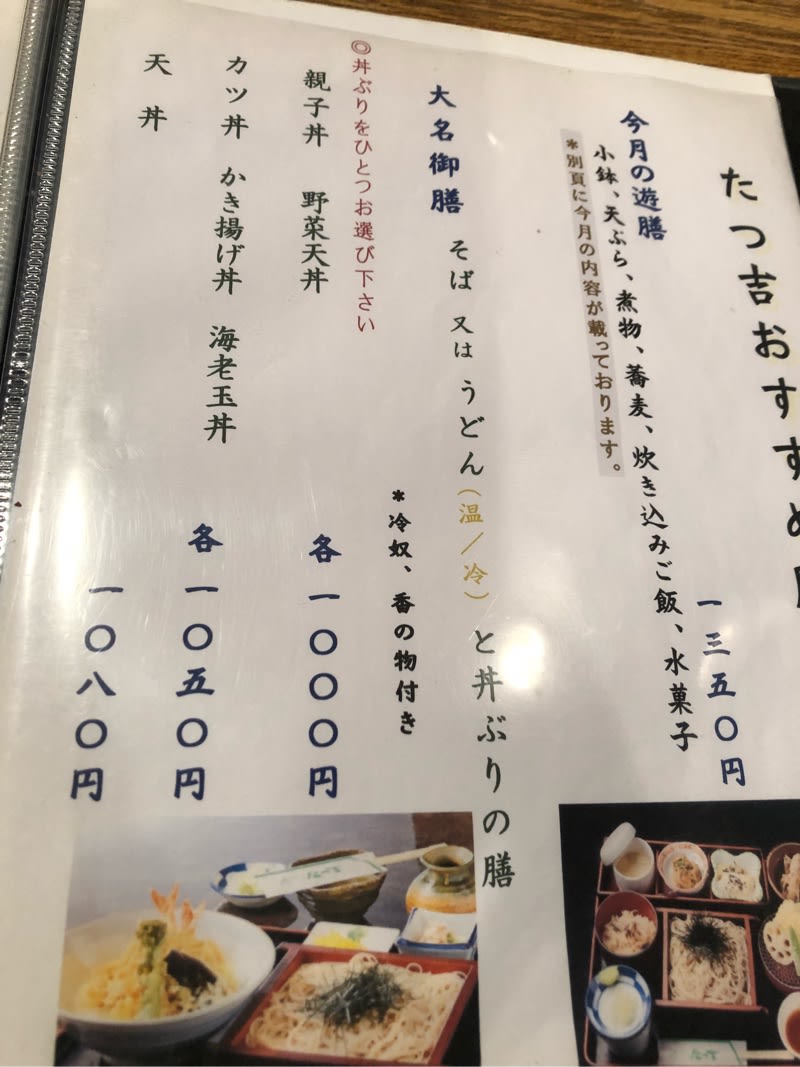 たつ吉おすすめ
今月の遊膳
一三五〇円
小鉢、天ぷら、煮物、蕎麦、炊き込みご飯、水菓子
*別頁に今月の内容が載っております。
大名御膳
そば 又は うどん(温/冷)と丼ぶりの膳
*冷奴、香の物付き
◎丼ぶりをひとつお選び下さい
親子丼 野菜天丼 各一〇〇〇円
カツ丼 かき揚げ丼 海老玉丼 各一〇五〇円
天丼 一〇八〇円